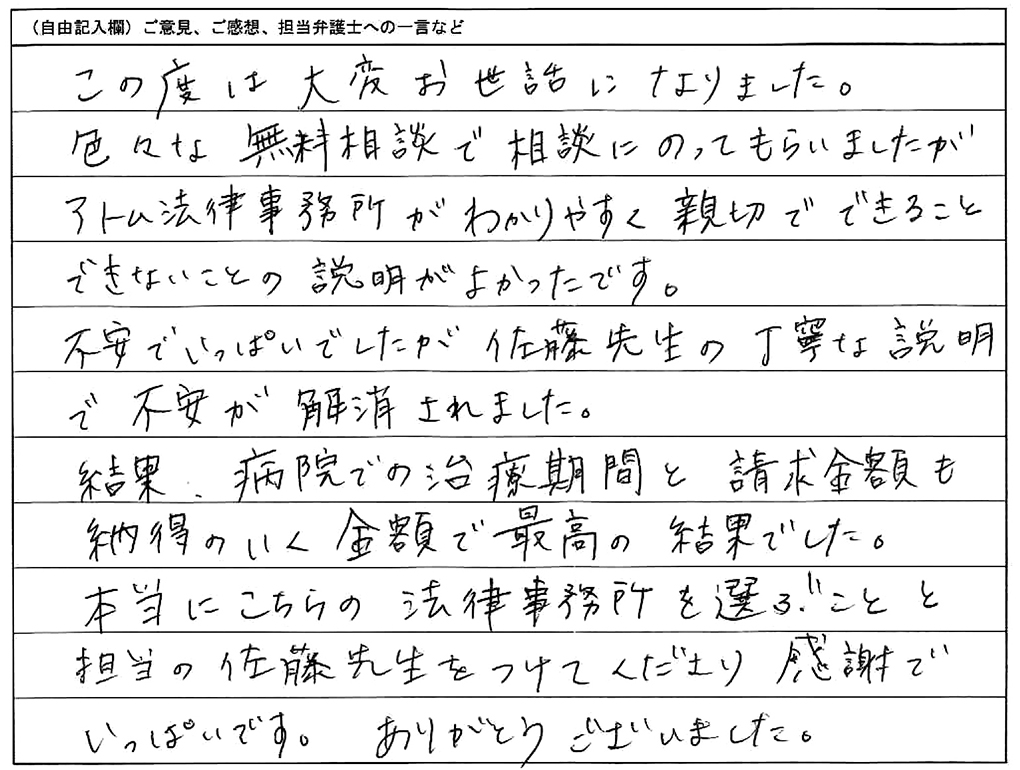 （自由記入欄）ご意見、ご感想、担当弁護士への一言など
この度は大変お世話になりました。
色々な無料相談で相談にのってもらいましたが
アトム法律事務所がわかりやすく親切でできること
できないことの説明がよかったです。
不安でいっぱいでしたが佐藤先生の丁寧な説明
で不安が解消されました。
結果、病院での治療期間と請求金額も
納得のいく金額で最高の結果でした。
本当にこちらの法律事務所を選ぶことと
担当の佐藤先生をつけてくださり感謝で
いっぱいです。ありがとうございました。